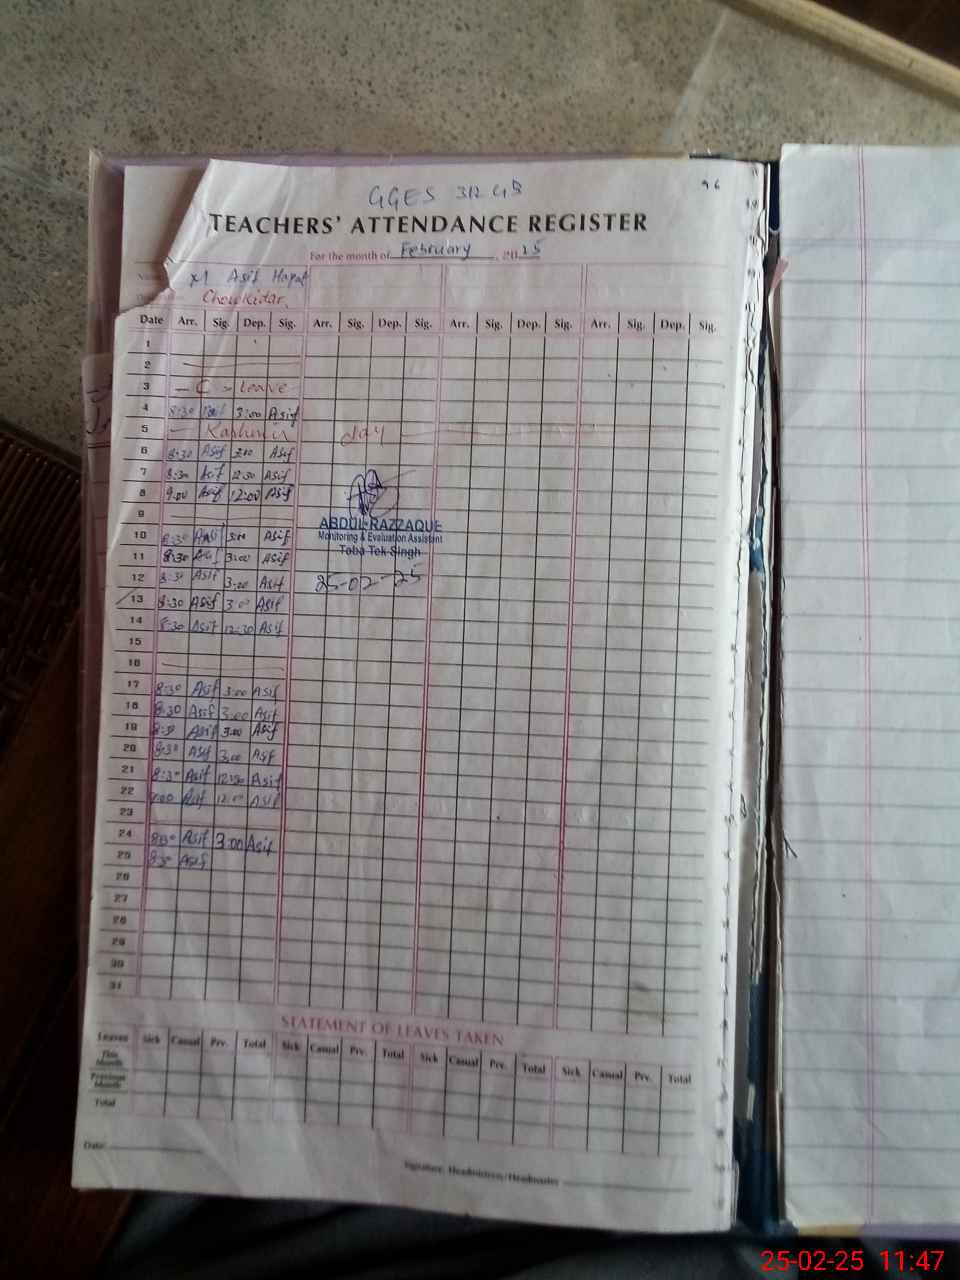 96
GGES 312 GB
TEACHERS' ATTENDANCE REGISTER
For the month of February, 2025
Asif Hayat
Chowkidar
Date Arr. Sig. Dep. Sig. Arr. Sig. Dep. Sig. Arr. Sig. Dep. Sig. Arr. Sig. Dep. Sig.
1
2
3 — C - Leave
4 8:30 3:00 Asif
5 — Kashmir day
6 8:30 Asif Asif
7 8:30 Asif 12:30 Asif
8 9:00 Asif 12:00 Asif
9
ABDUL RAZZAQUE
10 8:30 Asif 3:00 Asif
Monitoring & Evaluation Assistant
Toba Tek Singh
11 8:30 Asif 3:00 Asif
12 8:30 Asif 3:00 Asif
25-02-25
13 8:30 Asif 3:00 Asif
14 8:30 Asif 12:30 Asif
15
16
17 8:30 Asif 3:00 Asif
18 8:30 Asif 3:00 Asif
19 8:30 Asif 3:00 Asif
20 8:30 Asif 3:00 Asif
21 8:30 Asif 12:30 Asif
22 9:00 Asif 12:00 Asif
23
24 8:30 Asif 3:00 Asif
25 8:30 Asif
26
27
28
29
30
31
STATEMENT OF LEAVES TAKEN
Leaves Sick Casual Prv. Total Sick Casual Prv. Total Sick Casual Prv. Total Sick Casual Prv. Total
This Month
Previous Month
Total
Date
Signature: Headmistress/Headmaster
25-02-25 11:47